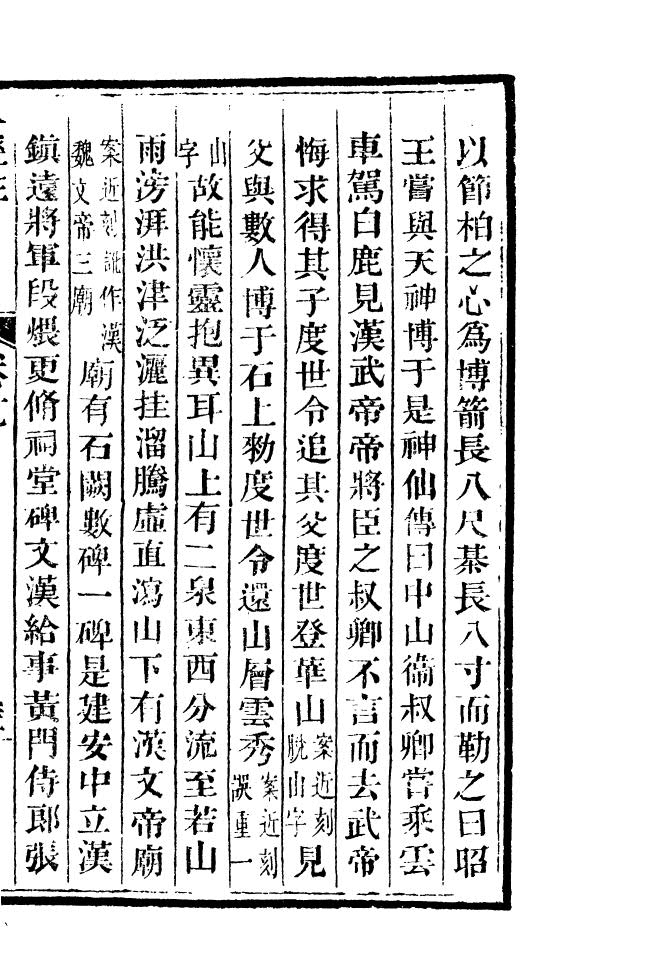 以節柏之心為博箭長八尺棊長八寸而勒之曰昭
王嘗與天神博于是神仙傳曰中山衞叔卿嘗乘雲
車駕白鹿見漢武帝帝將臣之叔卿不言而去武帝
悔求得其子度世令追其父度世登華山案近刻脫山字見
父與數人博于石上勑度世令還山層雲秀案近刻誤重一
山字故能懷靈抱異耳山上有二泉東西分流至若山
雨滂湃洪津泛灑挂溜騰虛直瀉山下有漢文帝廟
案近刻訛作漢魏文帝三廟廟有石闕數碑一碑是建安中立漢
鎮遠將軍段煨更脩祠堂碑文漢給事黃門侍郎張